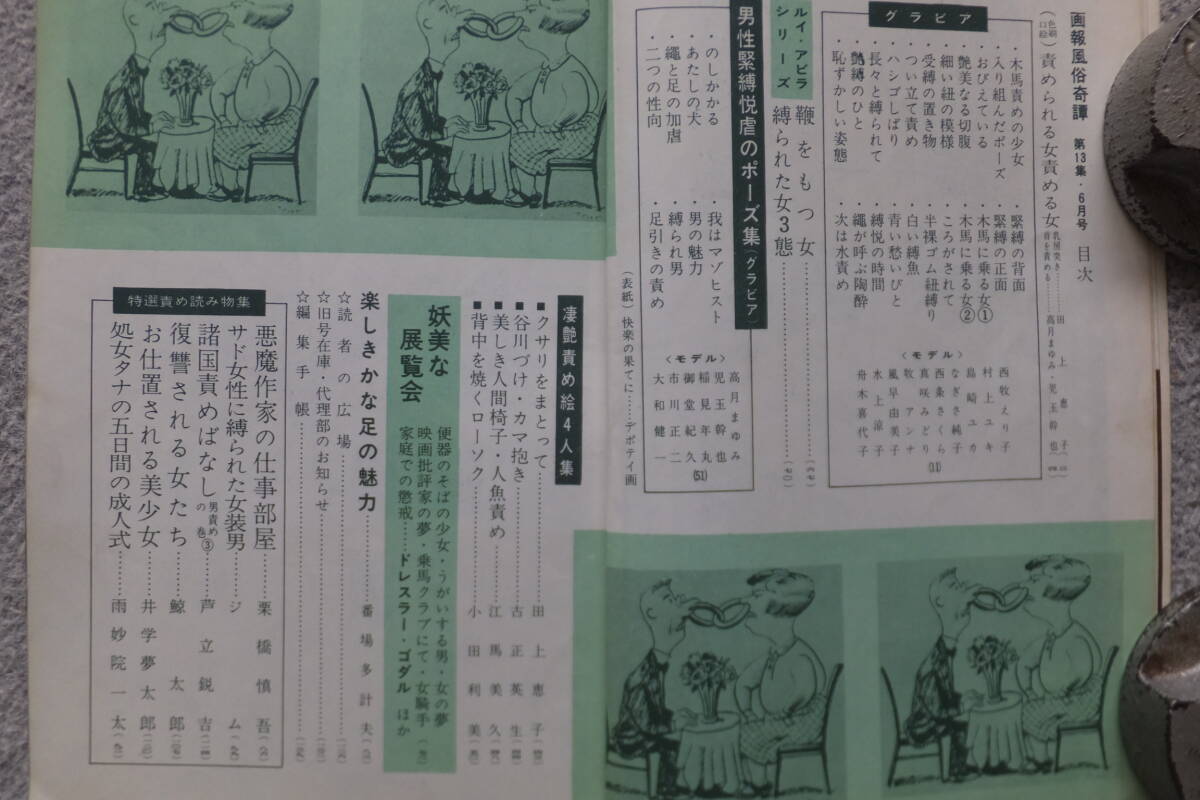 画報風俗奇譚 第13集・6月号 目次
(色刷口絵) 責められる女責める女
グラビア
・木馬責めの少女
・入り組んだポーズ
・おびえている
・艶美なる切腹
・細い紐の模様
・受縛の置き物
・つい立て責め
・ハシゴしばり
・長々と縛られて
・艶縛のひと
・恥ずかしい姿態
・緊縛の背面
・緊縛の正面
・木馬に乗る女①
・木馬に乗る女②
・ころがされて
・半裸ゴム紐縛り
・白い縛魚
・青い愁いびと
・縛悦の時間
・繩が呼ぶ陶酔
・次は水責め
〈モデル〉
西牧えり子
村上ユキ
島崎ユカ
なぎさ純子
西条さくら
真咲みどり
牧アンナ
風早由美
水上涼子
舟木喜代子
(11)
ルイ・アビラシリーズ
鞭をもつ女
縛られた女3態
男性緊縛悦虐のポーズ集(グラビア)
・のしかかる
・あたしの犬
・繩と足の加虐
・二つの性向
・我はマゾヒスト
・男の魅力
・縛られ男
・足引きの責め
〈モデル〉
高月まゆみ
児玉幹也
稲見年丸
御堂紀久
市川正二
大和健一
(51)
(表紙)快楽の果てに……デポティ画
凄艶責め絵4人集
■クサリをまとって……田上恵子
■谷川づけ・カマ抱き……古正英生
■美しき人間椅子・人魚責め……江馬美久
■背中を焼くローソク……小田利美
妖美な展覧会
便器のそばの少女・うがいする男・女の夢
映画批評家の夢・乗馬クラブにて・女騎手
家庭での懲戒……ドレスラー・ゴダル ほか
楽しきかな足の魅力……番場多計夫
☆読者の広場
☆旧号在庫・代理部のお知らせ
☆編集手帳
特選責め読み物集
悪魔作家の仕事部屋……栗橋慎吾
サド女性に縛られた女装男……ジム
諸国責めばなし 男責めの巻③……芦立鋭吉
復讐される女たち……鯨太郎
お仕置される美少女……井学夢太郎
処女タナの五日間の成人式……雨妙院一太